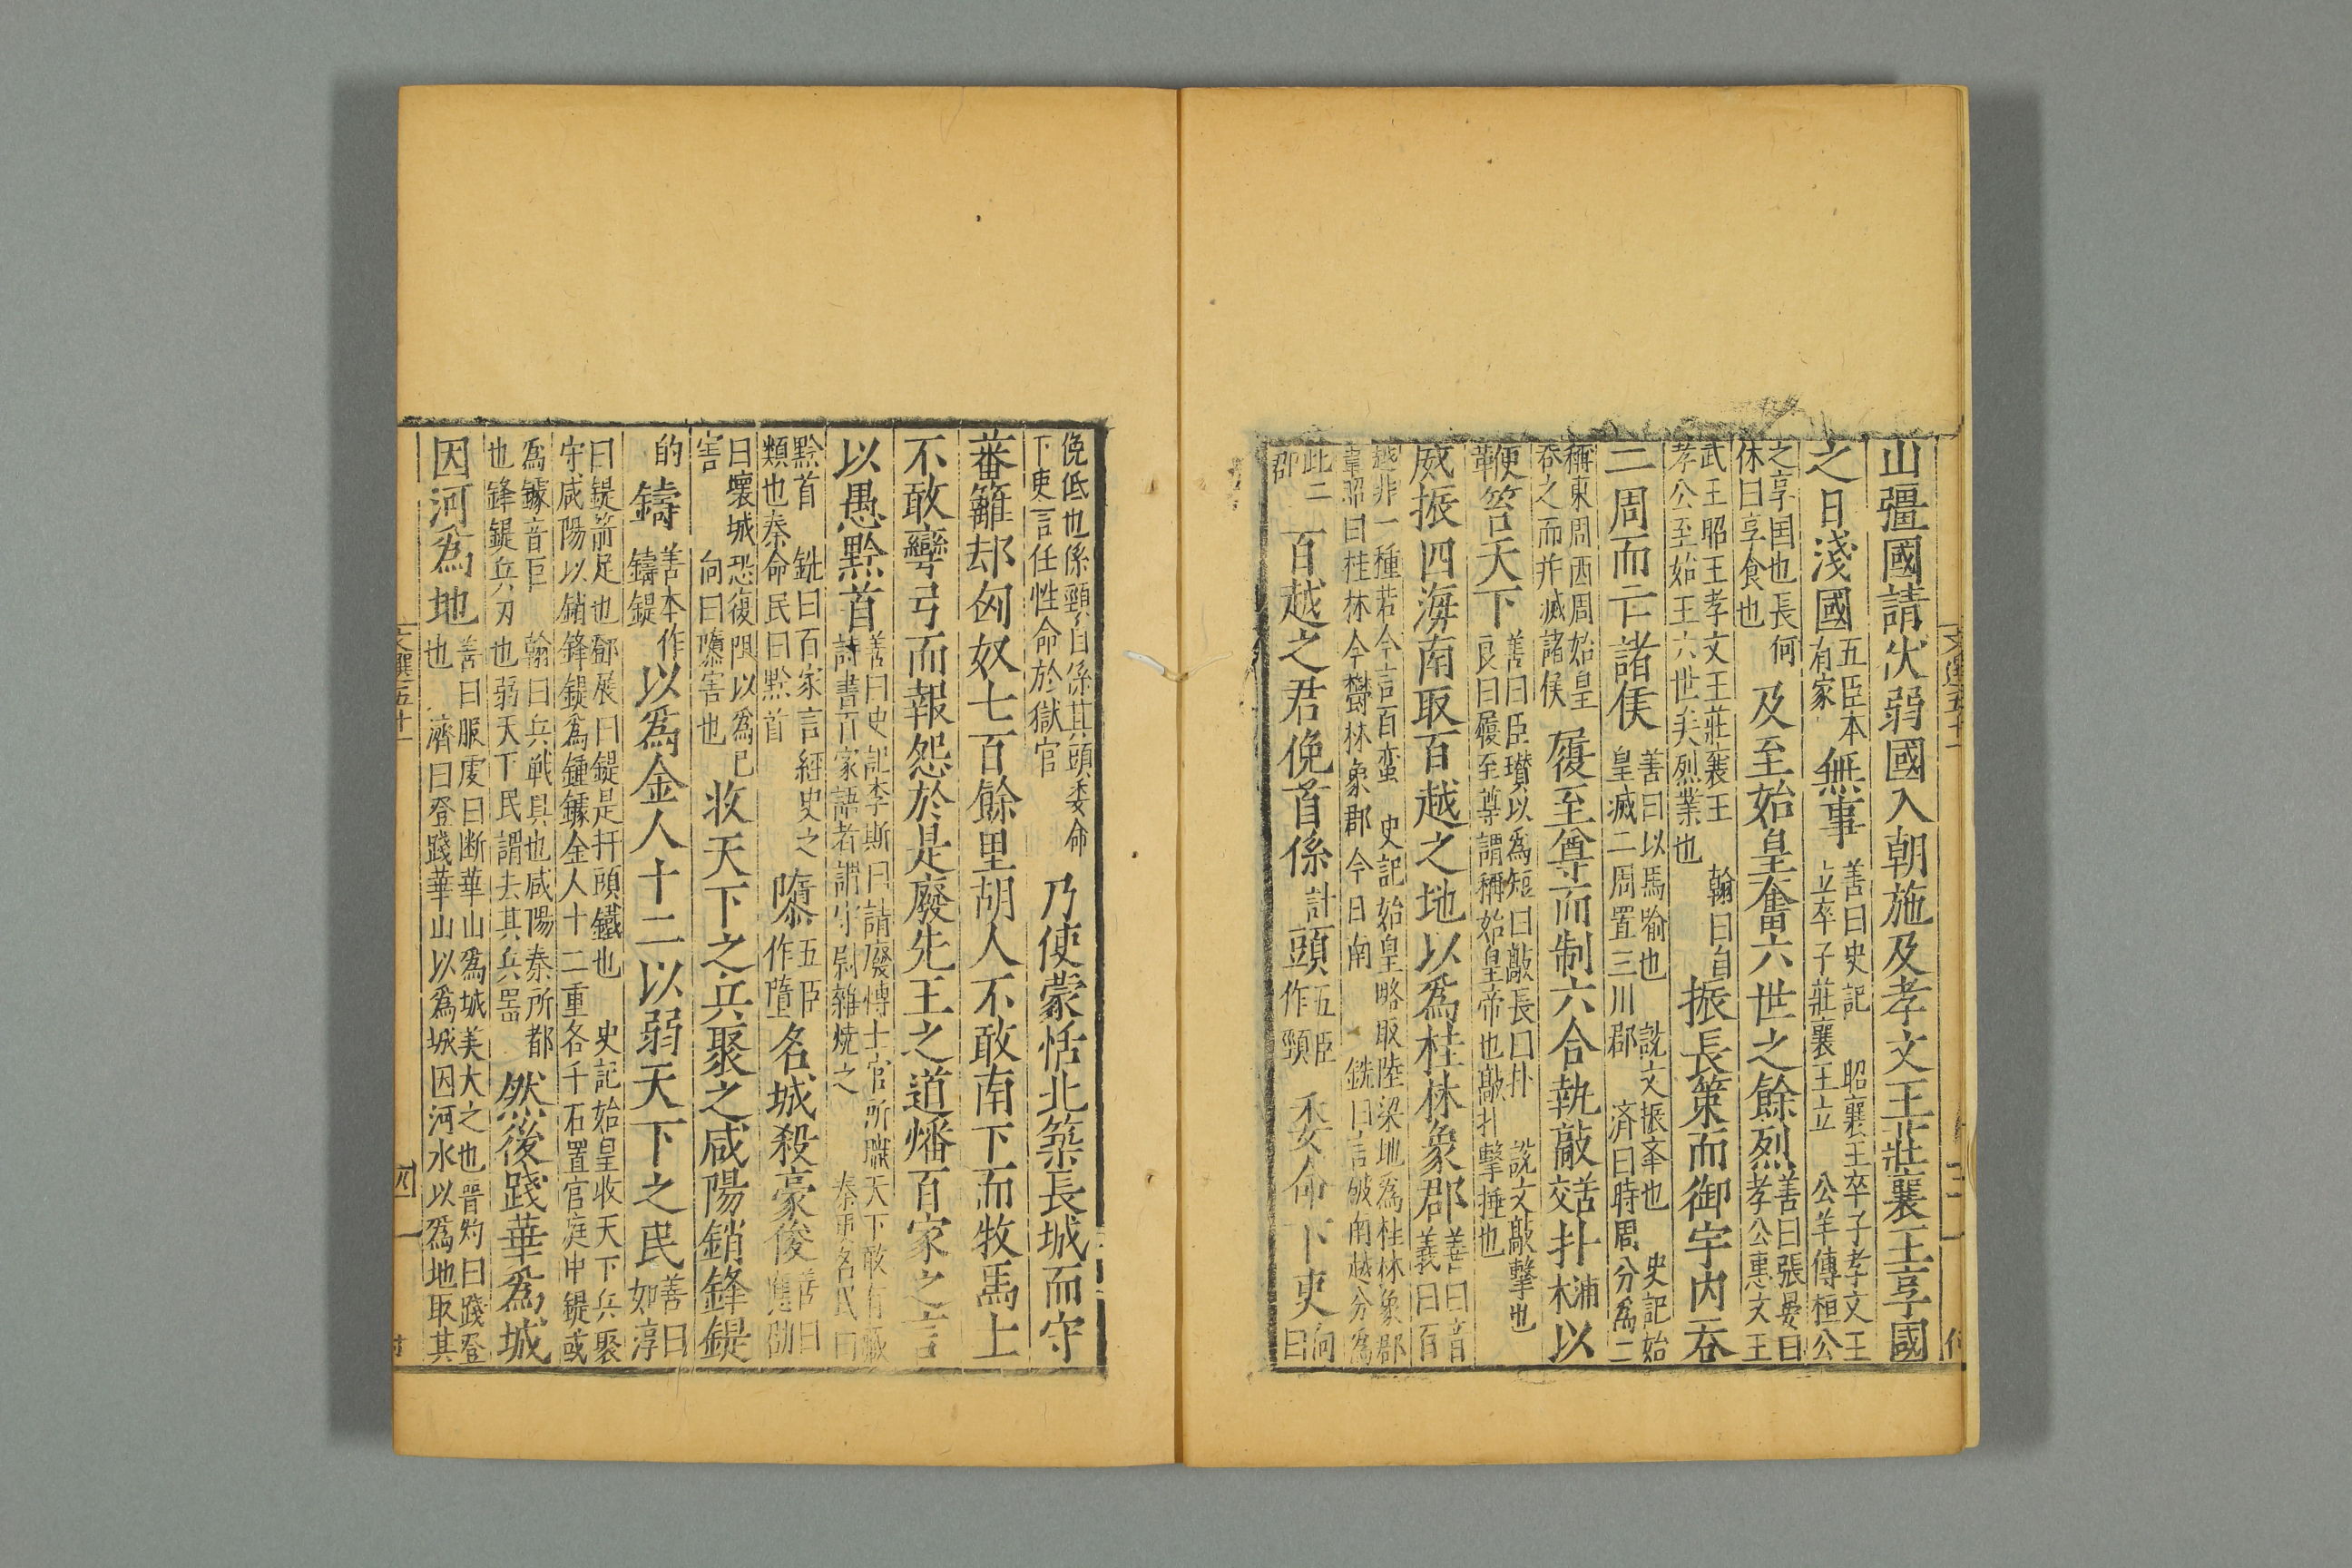 山彊國請伏弱國入朝施及孝文王莊襄王享國
之日淺國五臣本有家無事善曰史記昭襄王卒子孝文王立卒子莊襄王立公羊傳桓公
之享国也長何休曰享食也及至始皇奮六世之餘烈善曰張晏曰孝公惠文王
武王昭王孝文王莊襄王孝公至始王六世夫烈業也翰曰自振長策而御宇内吞
二周而亡諸侯善曰以馬喻也說文振奉也史記始皇滅二周置三川郡济曰時周分為二
稱東周西周始皇吞之而并滅諸侯履至尊而制六合執敲苦交扑浦木以
鞭笞天下善曰臣瓚以為短曰敲長曰扑說文敲擊也良曰履至尊謂稱始皇帝也敲扑擊捶也
威振四海南取百越之地以為桂林象郡善曰音義曰百
越非一種若今言百蛮史記始皇略取陸梁地為桂林象郡韋昭曰桂林今欝林象郡今日南銑曰言破南越分為
此二郡百越之君俛首係計頭五臣作頸委命下吏向曰
俛低也係頸自係其頭委命下吏言任性命於獄官乃使蒙恬北築長城而守
蕃籬却匈奴七百餘里胡人不敢南下而牧馬上
不敢彎弓而報怨於是廢先王之道燔百家之言
以愚黔首善曰史記李斯曰請廢博士官所職天下敢有藏詩書百家語者謂守尉雜焼之秦更名民曰
黔首銑曰百家言經史之類也秦命民曰黔首隳五臣作墮名城殺豪俊善曰應劭
曰壞城恐復阻以為己害向曰隳害也收天下之兵聚之咸陽銷鋒鍉
的鑄善本作鑄鍉以為金人十二以弱天下之民善曰如淳
曰鍉箭足也鄧展曰鍉是扞頭鐵也史記始皇收天下兵聚守咸陽以銷鋒鍉為鍾鐻金人十二重各千石置宫庭中鍉或
為鐻音巨翰曰兵戦具也咸陽秦所都也鋒鍉兵刃也弱天下民謂去其兵噐然後踐華為城
因河為地善曰服虔曰断華山為城美大之也晋灼曰踐登也濟曰登踐華山以為城因河水以為地取其
文選五十一
四